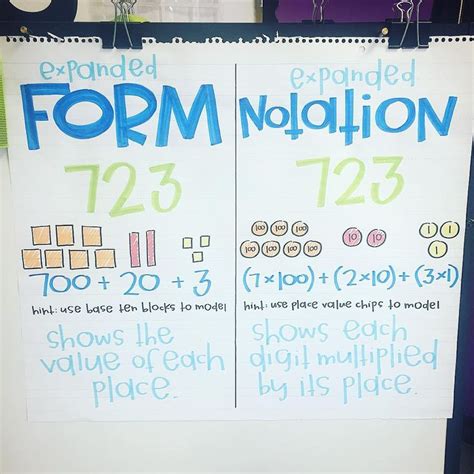 expanded
FORM
723
700 + 20 + 3
hint: use base ten blocks to model
shows the
value of each
place.
expanded
Notation
723
100 100 100
100 100 100 100
10 10
1
1 1
(7×100) + (2×10) + (3×1)
hint: use place value chips to model
shows each
digit multiplied
by its place.